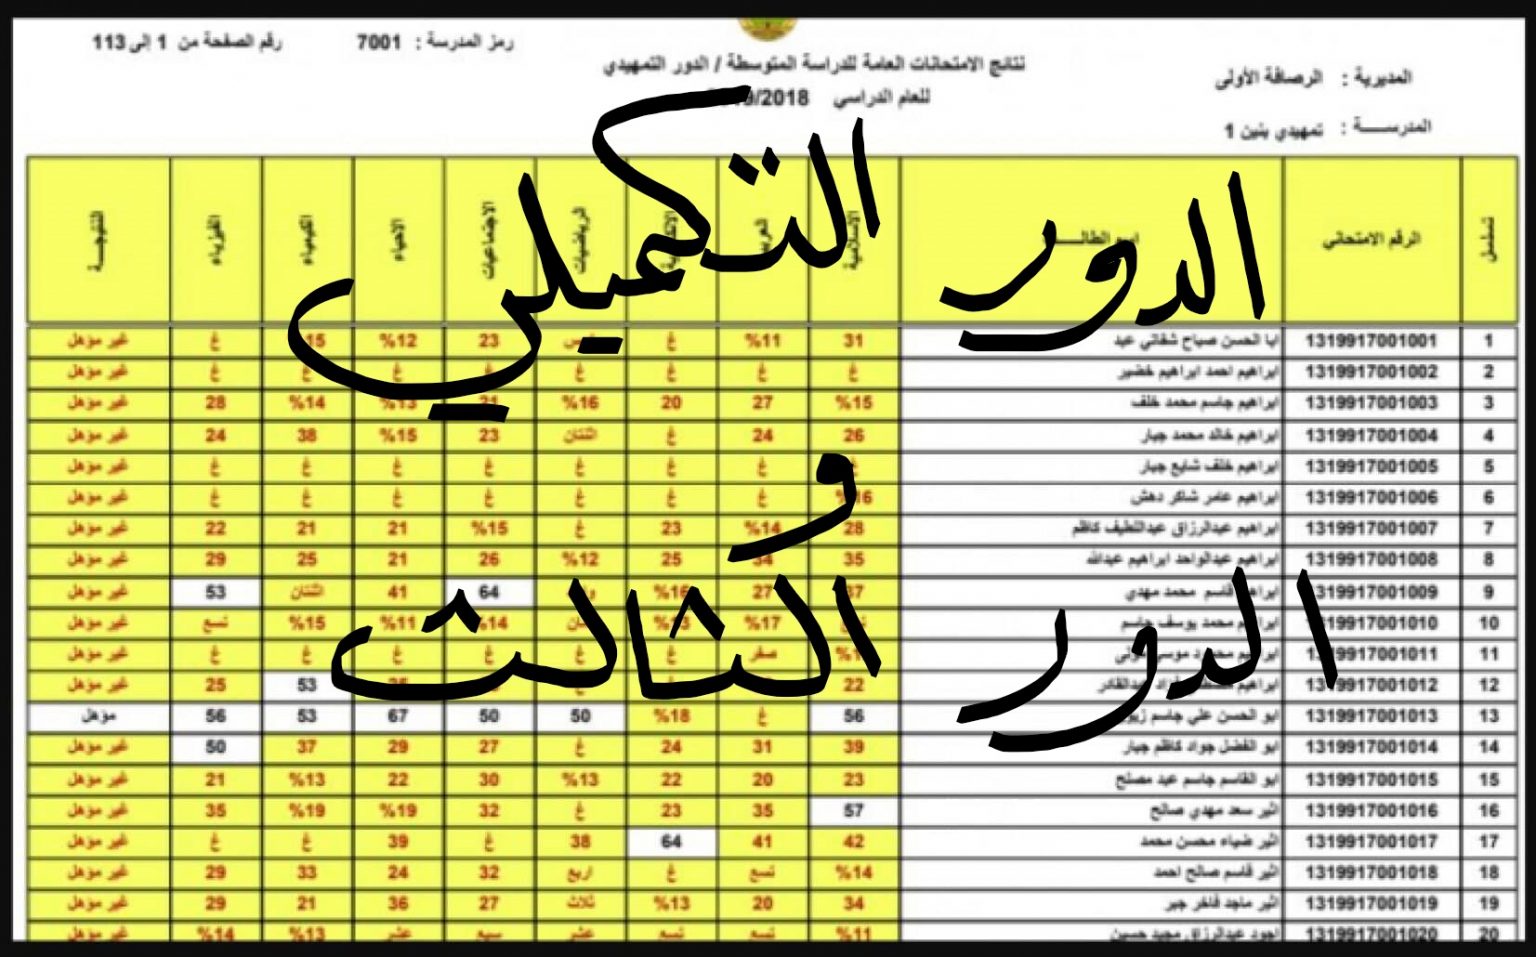 المديرية : الرصافة الأولى
نتائج الامتحانات العامة للدراسة المتوسطة / الدور التمهيدي
رمز المدرسة : 7001
رقم الصفحة من 1 إلى 113
للعام الدراسي /2018
المدرســـة : تمهيدي بنين 1
الدور التكميلي
و
الدور الثالث
تسلسل الرقم الامتحاني اسم الطالـــب الاسلامية الرياضيات الاجتماعيات الاحياء الكيمياء الفيزياء النتيجـــة
1 1319917001001 ابا الحسن صباح شفاتي عبد 31 %11 غ 23 %12 غ غير مؤهل
2 1319917001002 ابراهيم احمد ابراهيم خضير غ غ غ غ غ غ غ غ غير مؤهل
3 1319917001003 ابراهيم جاسم محمد خلف %15 27 20 %16 21 %13 %14 28 غير مؤهل
4 1319917001004 ابراهيم خالد محمد جبار 26 24 غ اثنتان 23 %15 38 24 غير مؤهل
5 1319917001005 ابراهيم خلف شايع جبار غ غ غ غ غ غ غ غير مؤهل
6 1319917001006 ابراهيم عامر شاكر دهش غ غ غ غ غ غ غ غير مؤهل
7 1319917001007 ابراهيم عبدالرزاق عبداللطيف كاظم 28 %14 23 غ %15 21 21 22 غير مؤهل
8 1319917001008 ابراهيم عبدالواحد ابراهيم عبدالله 35 34 25 %12 26 21 25 29 غير مؤهل
9 1319917001009 ابراهيم قاسم محمد مهدي 37 27 %16 64 41 اثنتان 53 غير مؤهل
10 1319917001010 ابراهيم محمد يوسف جاسم %17 %13 %14 %11 %15 تسع غير مؤهل
11 1319917001011 ابراهيم موسى صفر غ غ غ غ غ غير مؤهل
12 1319917001012 ابراهيم عبدالقادر 22 53 25 غير مؤهل
13 1319917001013 ابو الحسن علي جاسم 56 غ %18 50 50 67 53 56 مؤهل
14 1319917001014 ابو الفضل جواد كاظم جبار 39 31 24 غ 27 29 37 50 غير مؤهل
15 1319917001015 ابو القاسم جاسم عبد مصلح 23 20 22 %13 30 22 %13 21 غير مؤهل
16 1319917001016 اثير سعد مهدي صالح 57 35 23 غ 32 %19 %19 35 غير مؤهل
17 1319917001017 اثير ضياء محسن محمد 42 41 64 38 غ 39 غ غ غير مؤهل
18 1319917001018 اثير قاسم صالح احمد %14 تسع غ اربع 32 24 33 29 غير مؤهل
19 1319917001019 اثير ماجد فاخر جبر 34 20 %13 ثلاث 27 36 21 29 غير مؤهل
20 1319917001020 اجود عبدالرزاق مجيد حسين %11 تسع تسع عشر سبع عشر %13 %14 غير مؤهل